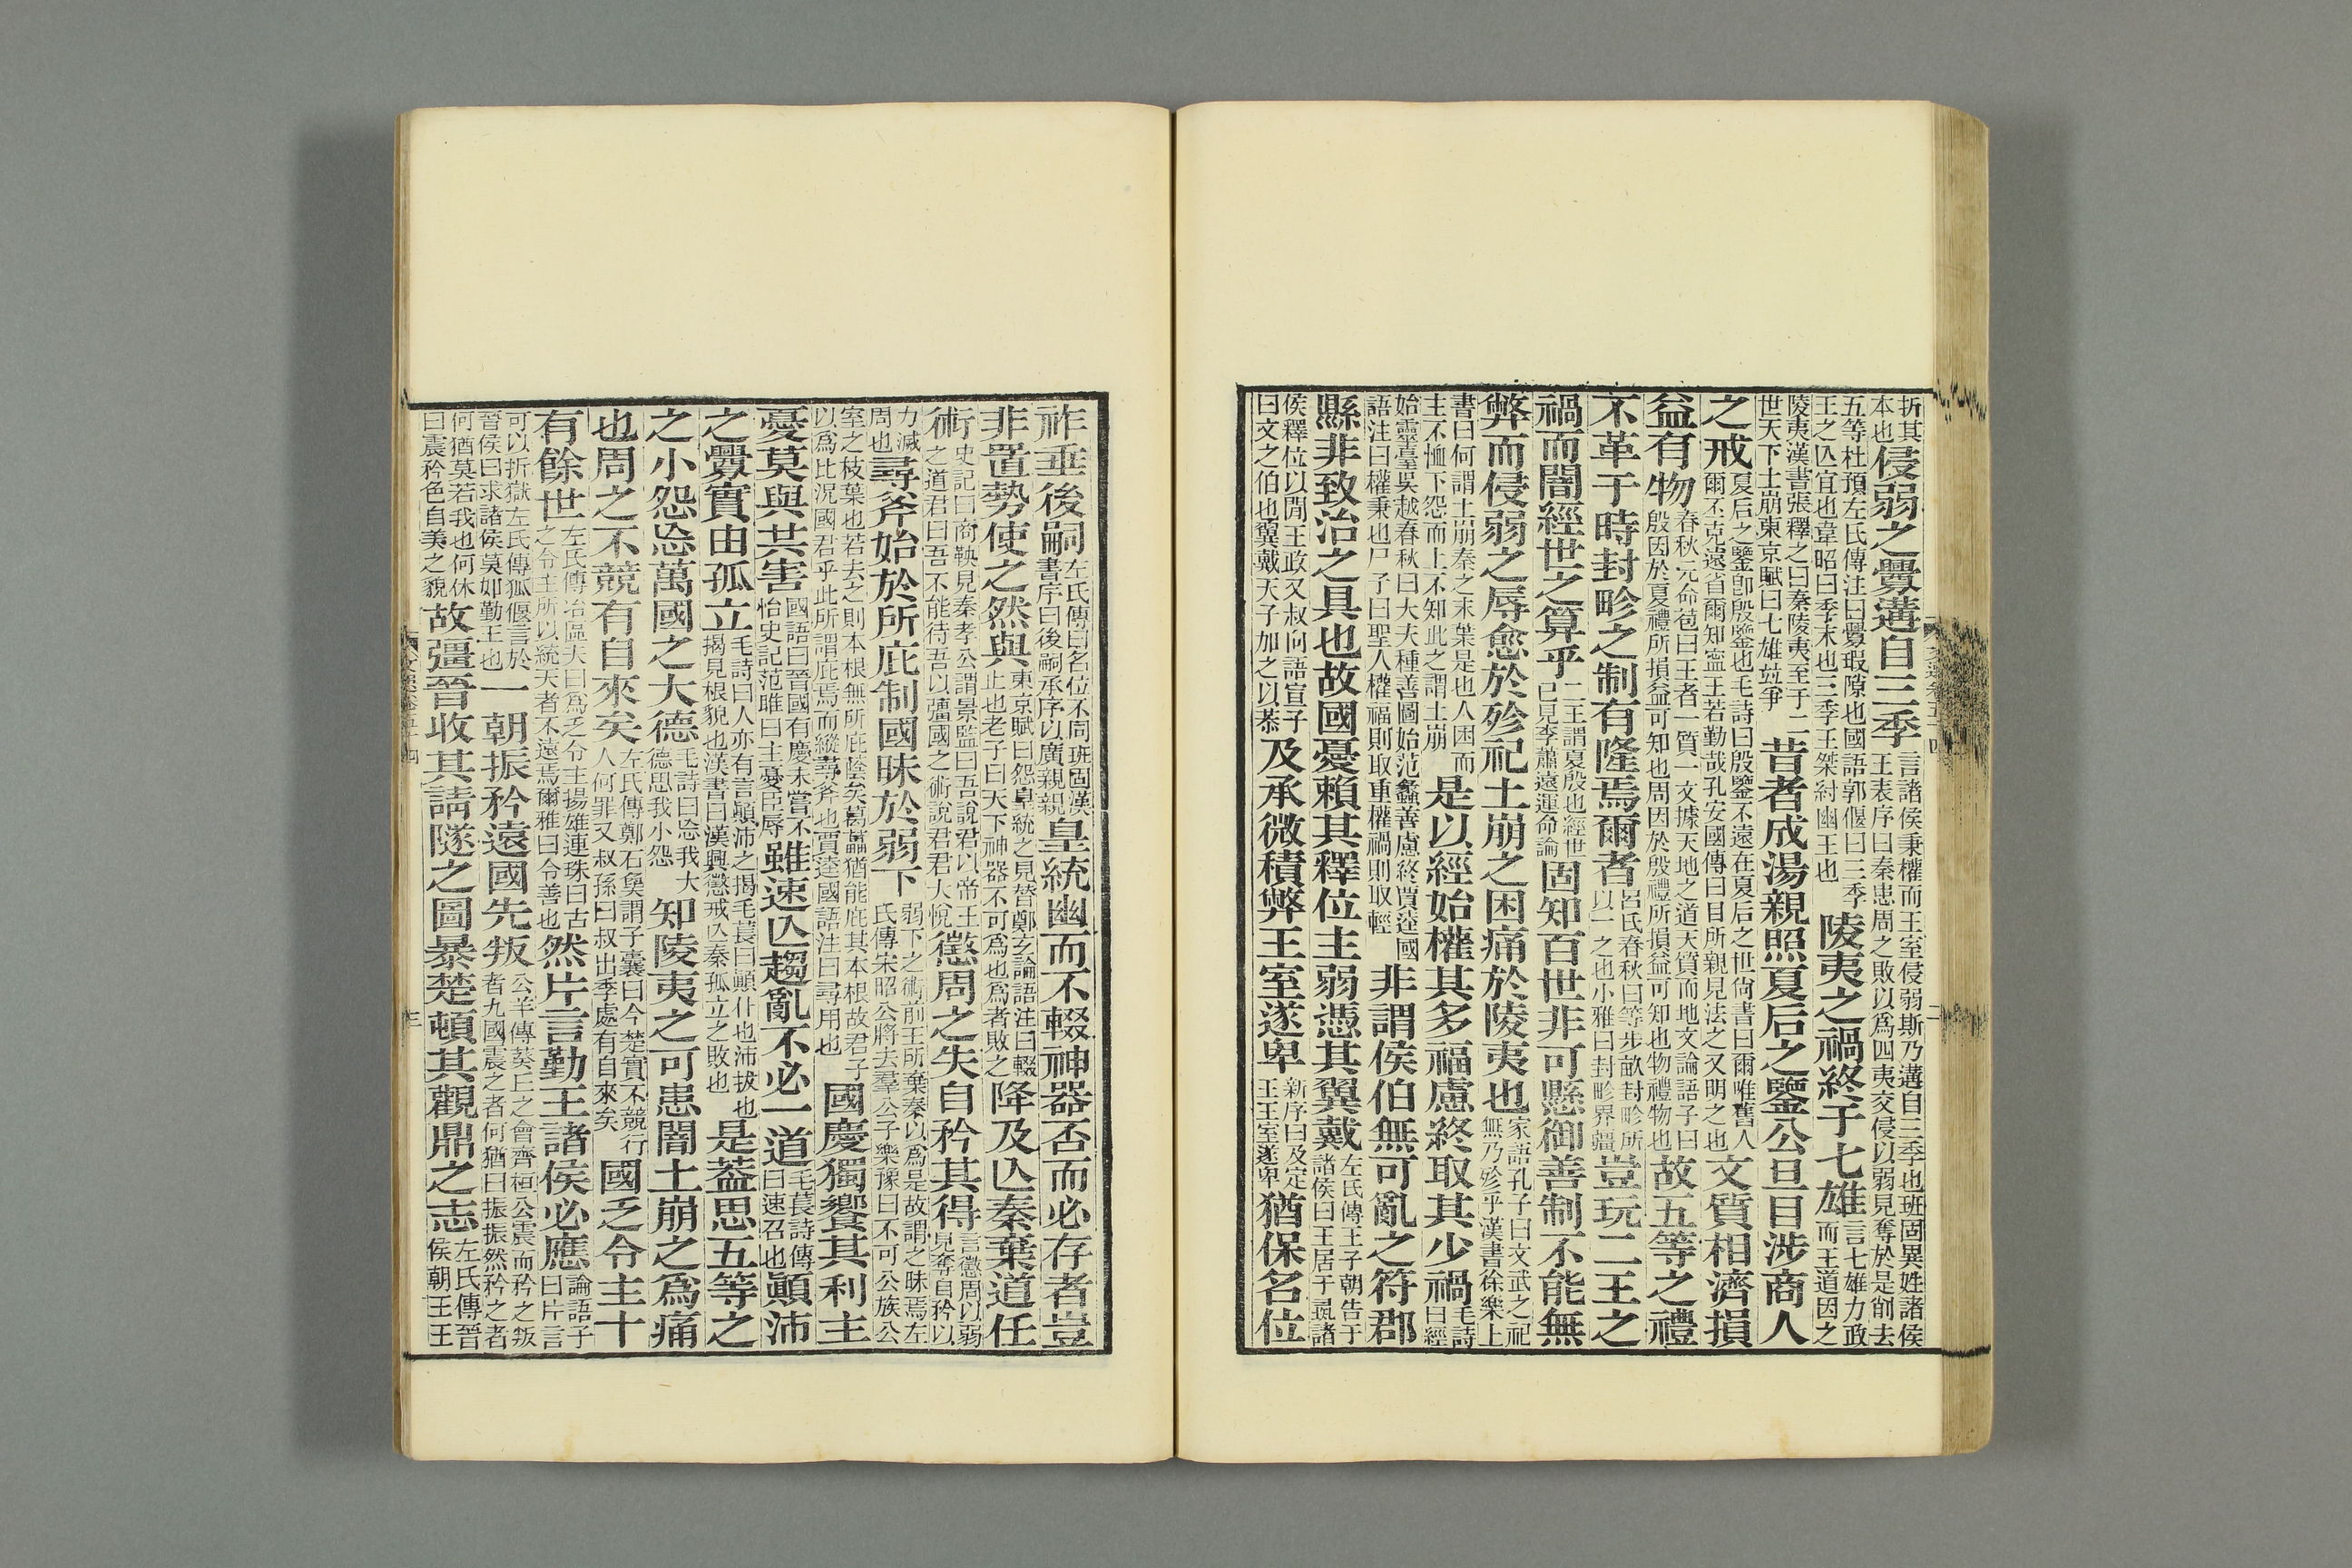 折其本也侵弱之釁遘自三季言諸侯秉權而王室侵弱斯乃遘自三季也班固異姓諸侯王表序曰秦患周之敗以爲四夷交侵以弱見奪於是削去
五等杜預左氏傳注曰釁瑕隙也國語郭偃曰三季王之亾宜也韋昭曰季末也三季王桀紂幽王也陵夷之禍終于七雄言七雄力政而王道因之
陵夷漢書張釋之曰秦陵夷至于二世天下土崩東京賦曰七雄竝爭昔者成湯親照夏后之鑒公旦目涉商人
之戒夏后之鑒卽殷鑒也毛詩曰殷鑒不遠在夏后之世尙書曰爾唯舊人爾丕克遠省爾知寍王若勤哉孔安國傳曰目所親見法之又明之也文質相濟損
益有物春秋元命苞曰王者一質一文據天地之道天質而地文論語子曰殷因於夏禮所損益可知也周因於殷禮所損益可知也物禮物也故五等之禮
不革于時封畛之制有隆焉爾者呂氏春秋曰等步畝封畛所以一之也小雅曰封畛界疆豈玩二王之
禍而闇經世之算乎二王謂夏殷也經世已見李蕭遠運命論固知百世非可懸御善制不能無
弊而侵弱之辱愈於殄祀土崩之困痛於陵夷也家語孔子曰文武之祀無乃殄乎漢書徐樂上
書曰何謂土崩秦之末葉是也人困而主不恤下怨而上不知此之謂土崩是以經始權其多福慮終取其少禍毛詩曰經
始靈臺吳越春秋曰大夫種善圖始范蠡善慮終賈逵國語注曰權秉也尸子曰聖人權福則取重權禍則取輕非謂侯伯無可亂之符郡
縣非致治之具也故國憂賴其釋位主弱憑其翼戴左氏傳王子朝告于諸侯曰王居于彘諸
侯釋位以閒王政又叔向語宣子曰文之伯也翼戴天子加之以恭及承微積弊王室遂卑新序曰及定王王室遂卑猶保名位
祚垂後嗣左氏傳曰名位不同班固漢書序曰後嗣承序以廣親親皇統幽而不輟神器否而必存者豈
非置勢使之然與東京賦曰怨皇統之見替鄭玄論語注曰輟止也老子曰天下神器不可爲也爲者敗之降及亾秦棄道任
術史記曰商鞅見秦孝公謂景監曰吾說君以帝王之道君曰吾不能待吾以彊國之術說君君大悅懲周之失自矜其得言懲周以弱見奪自矜以
力滅周也尋斧始於所庇制國昧於弱下弱下之術前王所棄秦以爲是故謂之昧焉左氏傳宋昭公將去羣公子樂豫曰不可公族公
室之枝葉也若去之則本根無所庇蔭矣葛藟猶能庇其本根故君子以爲比況國君乎此所謂庇焉而縱尋斧也賈逵國語注曰尋用也國慶獨饗其利主
憂莫與共害國語曰晉國有慶未嘗不怡史記范雎曰主憂臣辱雖速亾趨亂不必一道毛萇詩傳曰速召也顚沛
之釁實由孤立毛詩曰人亦有言顚沛之揭毛萇曰顚什也沛拔也揭見根貌也漢書曰漢興懲戒亾秦孤立之敗也是蓋思五等之
之小怨忘萬國之大德毛詩曰忘我大德思我小怨知陵夷之可患闇土崩之爲痛
也周之不競有自來矣左氏傳鄭石㚟謂子囊曰今楚實不競行人何罪又叔孫曰叔出季處有自來矣國乏令主十
有餘世左氏傳冶區夫曰爲乏令主揚雄連珠曰古之令主所以統天者不遠焉爾雅曰令善也然片言勤王諸侯必應論語子曰片言
可以折獄左氏傳狐偃言於晉侯曰求諸侯莫如勤王也一朝振矜遠國先叛公羊傳葵丘之會齊桓公震而矜之叛者九國震之者何猶曰振振然矜之者
何猶莫若我也何休曰震矜色自美之貌故彊晉收其請隧之圖暴楚頓其觀鼎之志左氏傳晉侯朝王王